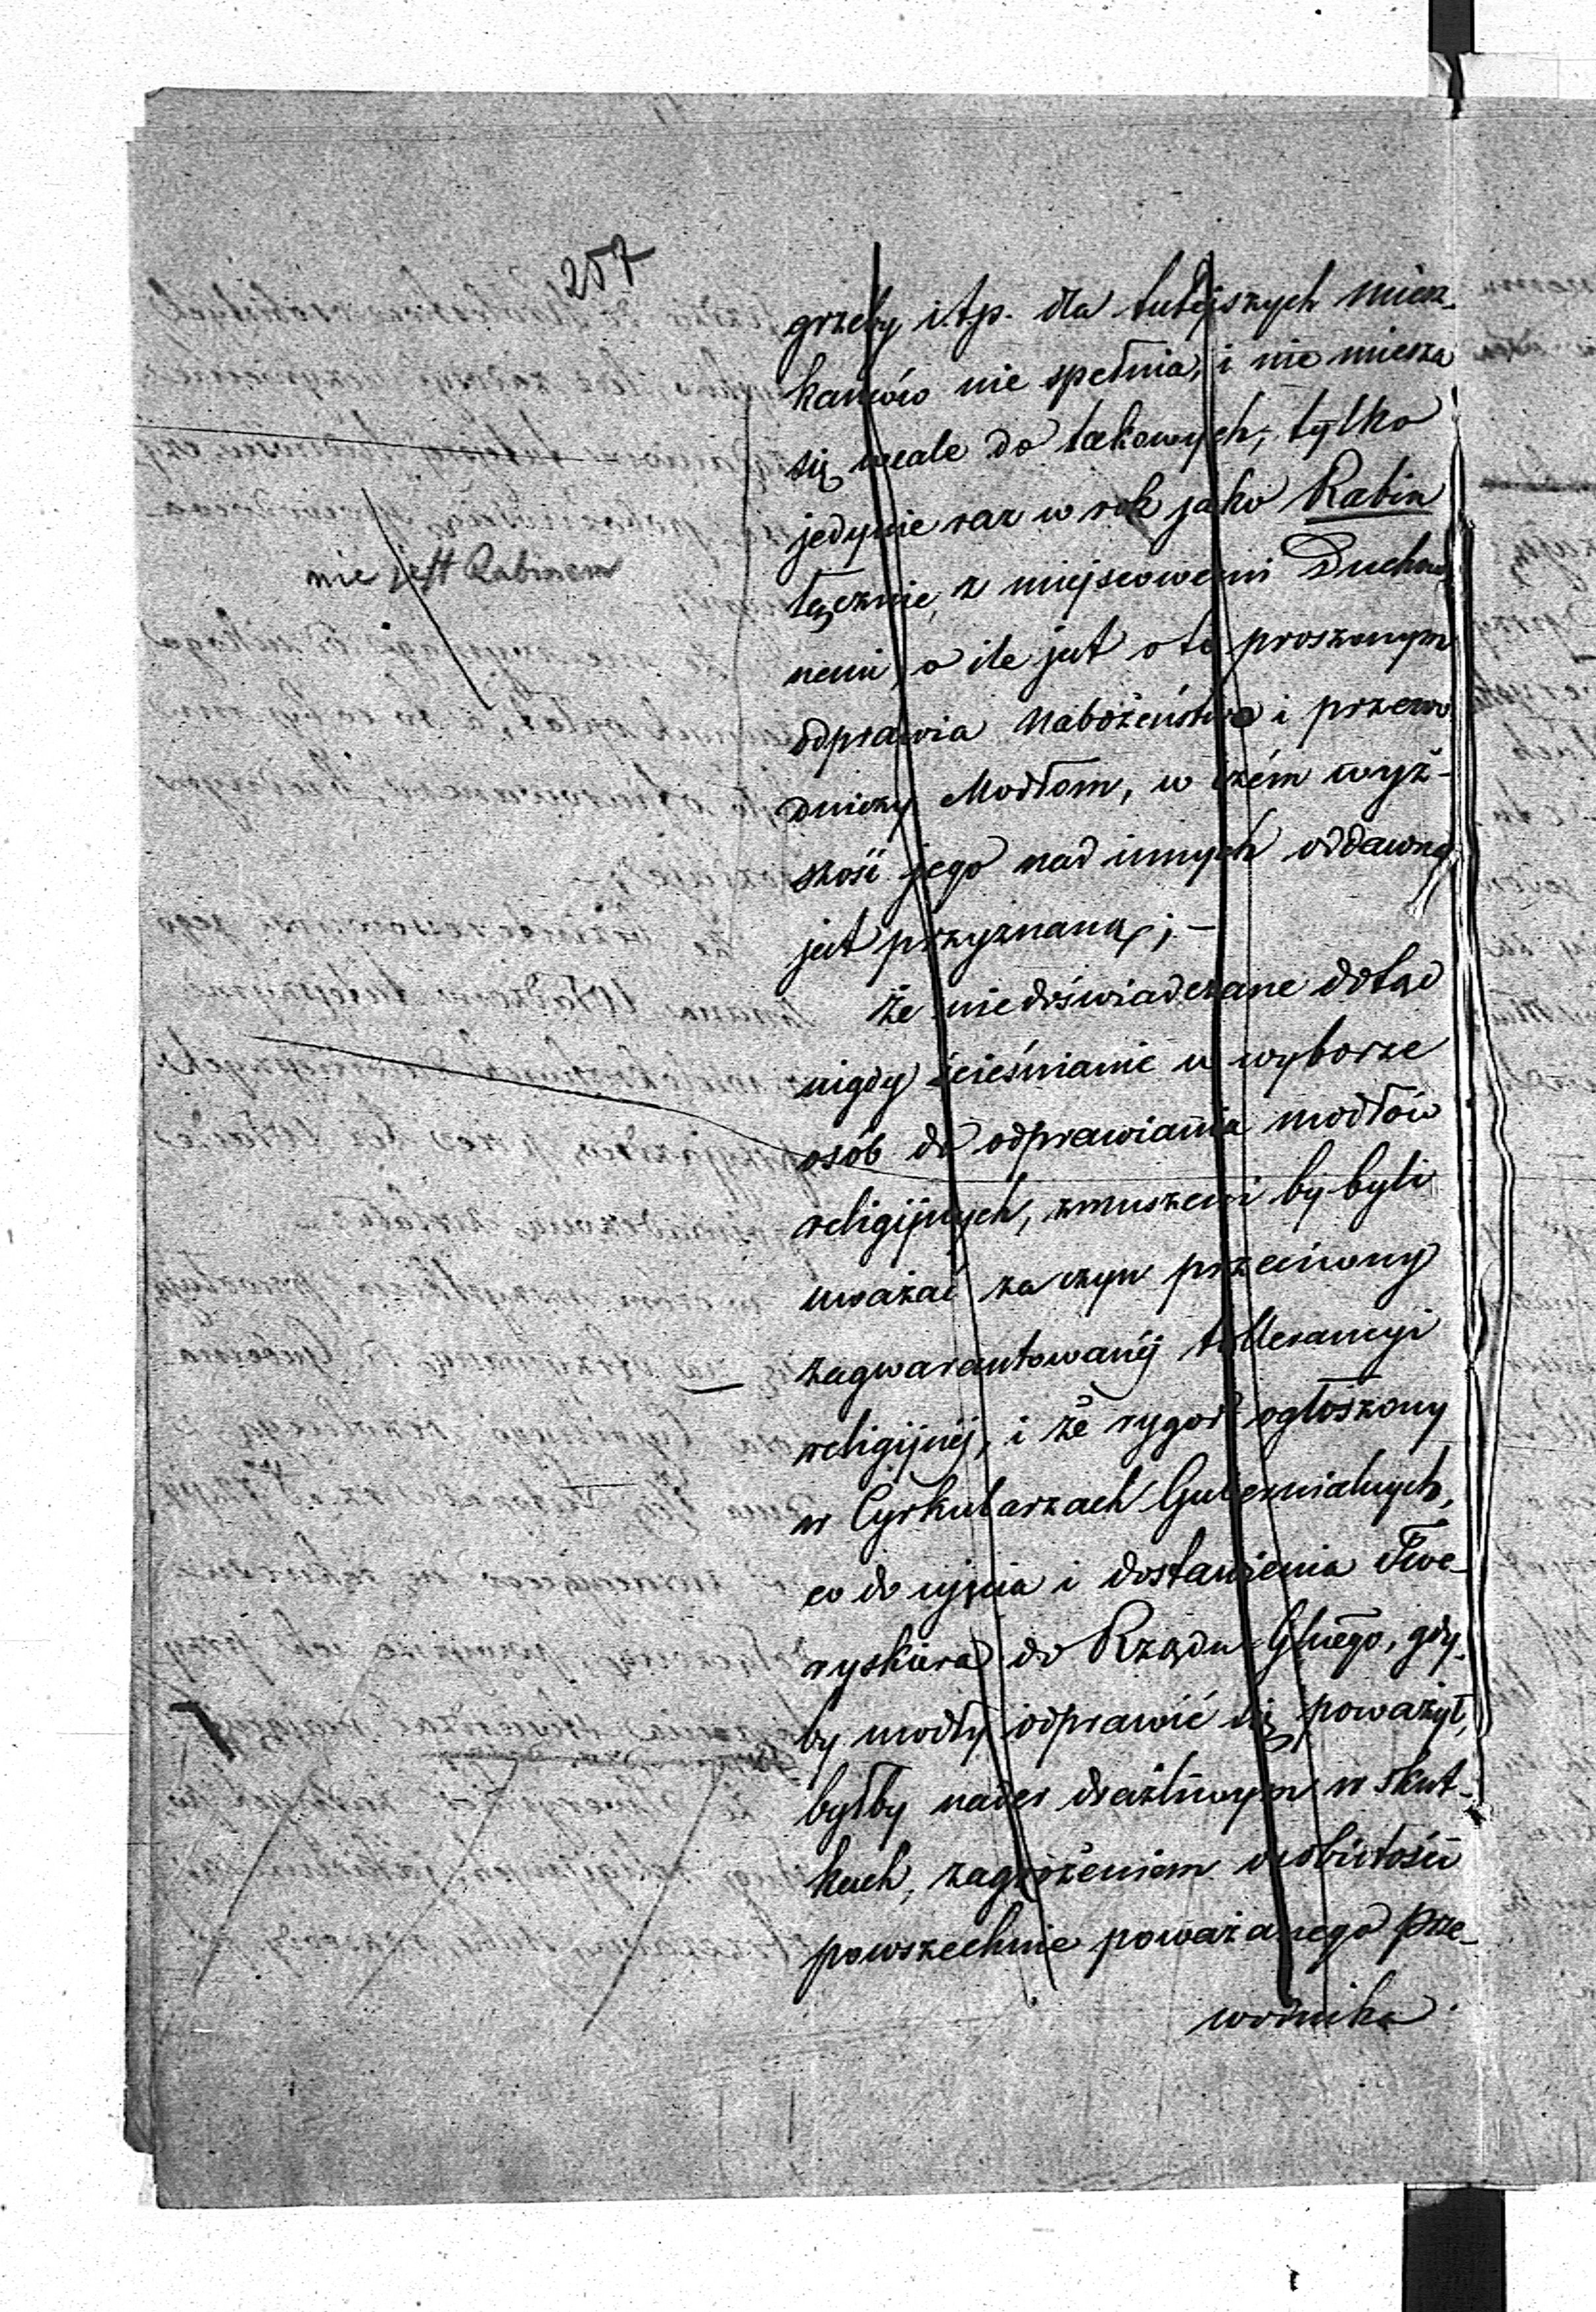 257
grzeby i.t.p. dla tutejszych miesz-
kańców nie spełnia, i nie miesza
się wcale do takowych, tylko
jedynie raz w rok jako Rabin
nie jest Rabinem
łącznie z miejscowemi Duchow
nemi, o ile jest o to proszonym
odprawia Nabożeństwo i przewo
dniczy Modłom, w czém wyż-
szość jego nad innych oddawna
jest przyznaną; –
że niedoświadczane dotąd
nigdy ścieśnianie w wyborze
osób do odprawiania modłów
religijnych, zmuszeni by byli
uważać za czyn przeciwny
zagwarantowanéj tollerancyi
religijnéj, i że rygor ogłoszony
w Cyrkularzach Gubernialnych,
co do ujęcia i dostawienia Twe-
ryskiera do Rządu Glnego, gdy-
by modły odprawić się poważył,
byłby nader drażliwym w skut-
kach, zagrożeniem osobistości
powszechnie poważanego prze-
wodnika